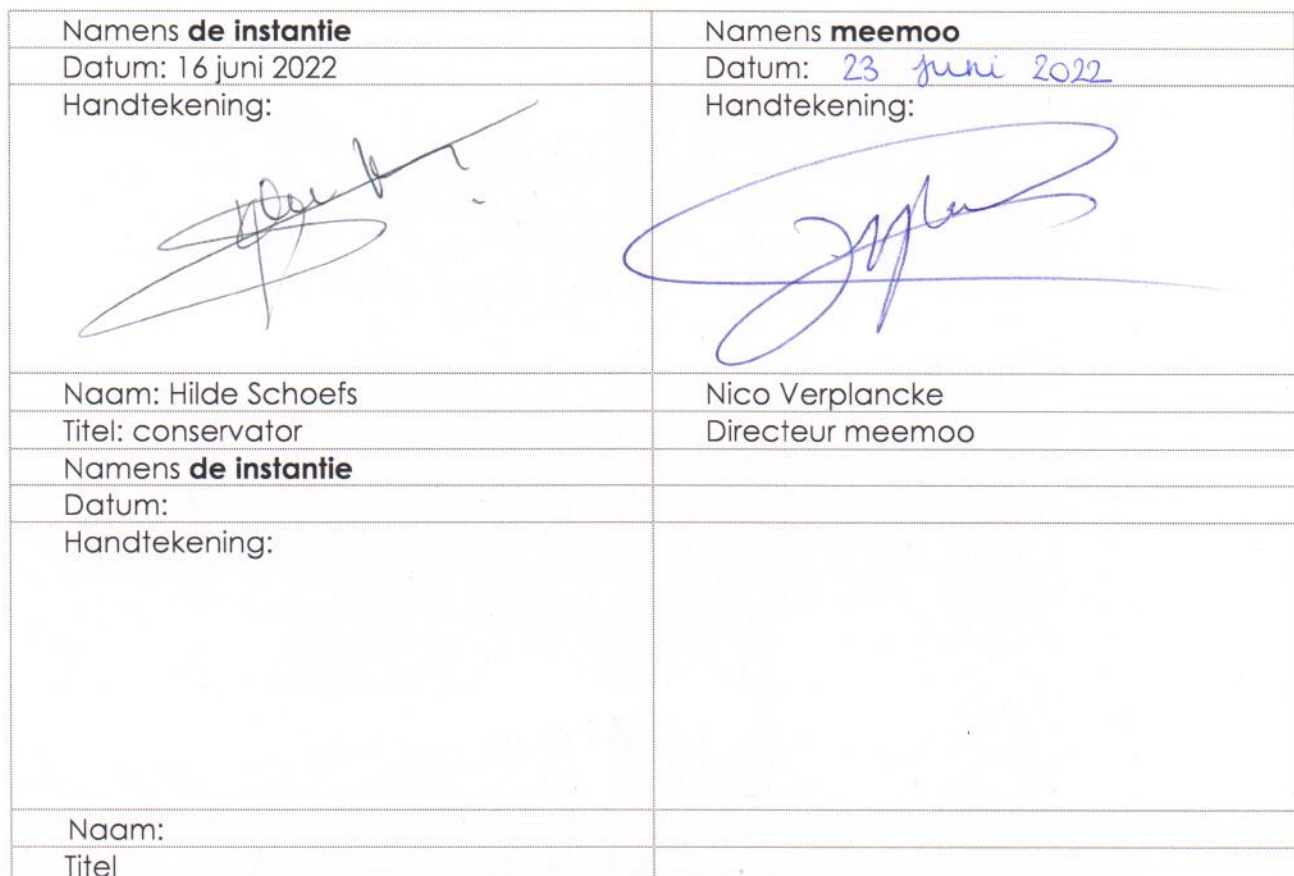 Namens de instantie
Namens meemoo
Datum: 16 juni 2022
Datum: 23 juni 2022
Handtekening:
Handtekening:
Naam: Hilde Schoefs
Nico Verplancke
Titel: conservator
Directeur meemoo
Namens de instantie
Datum:
Handtekening:
Naam:
Titel